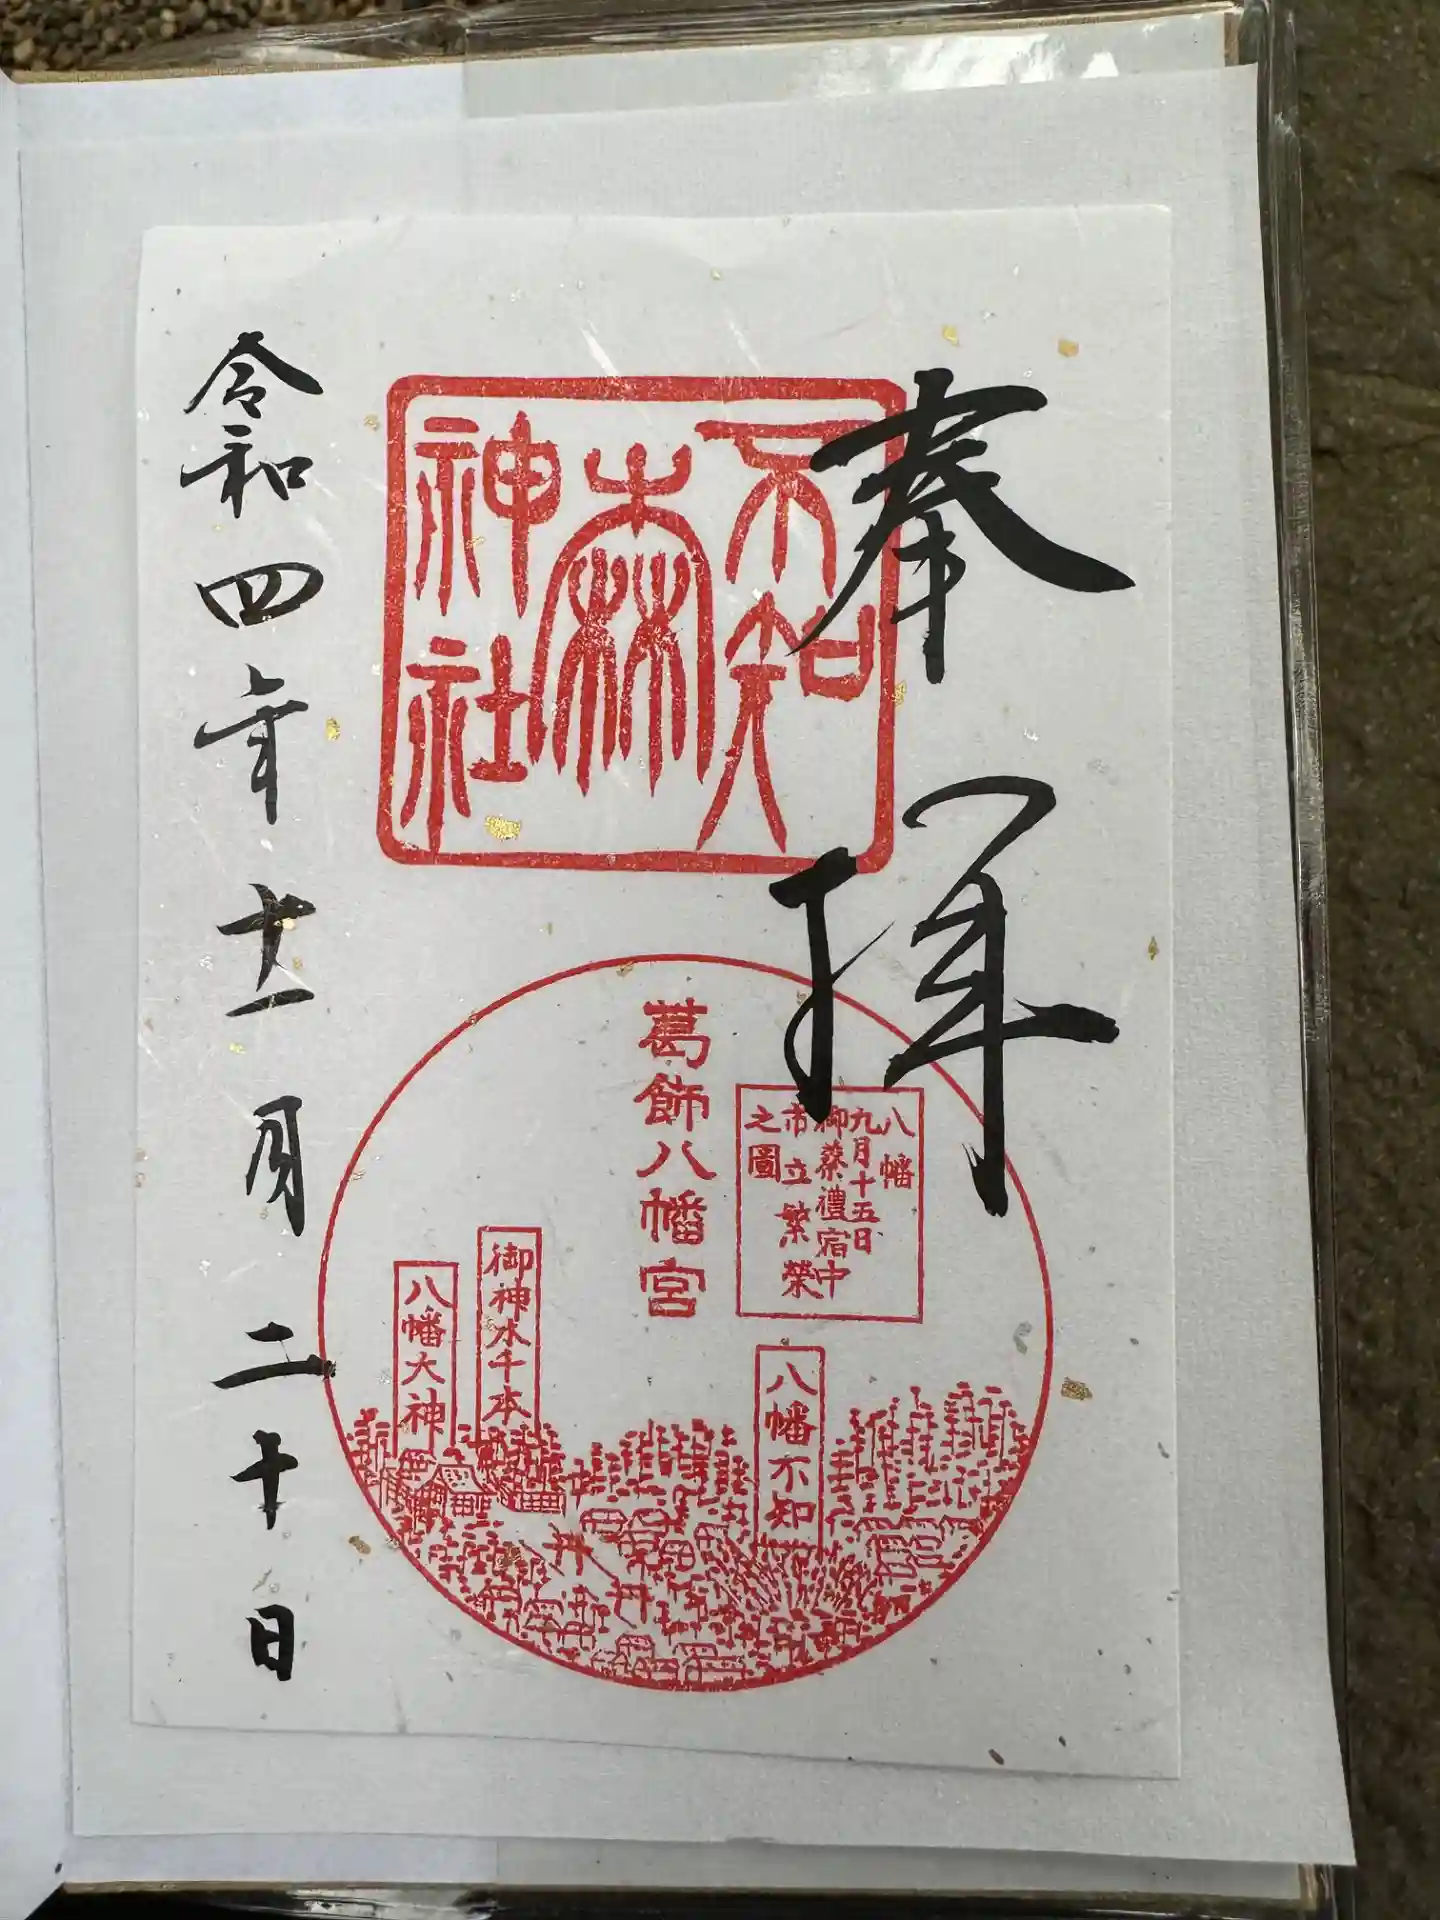 奉拝
不知
森
神社
葛飾八幡宮
八幡
九月十五日
御祭禮宿中
市立繁榮
之圖
八幡不知
御神水千本
八幡大神
令和四年十一月二十日